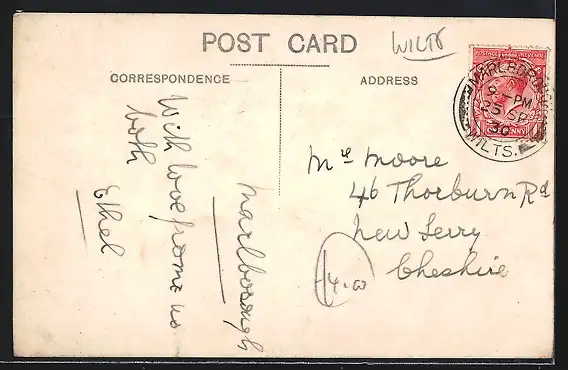 POST CARD
WILTS
CORRESPONDENCE
ADDRESS
Marlborough
With love from us
both
Ethel
Mrs Moore
46 Thorburn Rd
New Ferry
Cheshire
14.00
POSTAGE REVENUE
ONE PENNY
MARLBOROUGH
PM
25 SP
WILTS.